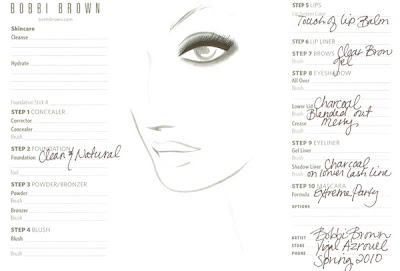 BOBBI BROWN
bobbibrown.com
Skincare
Cleanse
Hydrate
Foundation Stick #
STEP 1 CONCEALER
Corrector
Concealer
Brush
STEP 2 FOUNDATION
Foundation Clean & Natural
Tool
STEP 3 POWDER/BRONZER
Powder
Brush
Bronzer
Brush
STEP 4 BLUSH
Blush
Brush
STEP 5 LIPS
Touch of Lip Balm
STEP 6 LIP LINER
STEP 7 BROWS Clear Brow
Brush gel
STEP 8 EYESHADOW
All Over
Brush
Lower Lid Charcoal
Brush Blended out
Crease Messy
Brush
STEP 9 EYELINER
Gel Liner
Shadow Liner Charcoal
Brush on lower lash line
STEP 10 MASCARA
Formula Extreme Party
OPTIONS
ARTIST Bobbi Brown
STORE Yigal Azrouel
PHONE Spring 2010